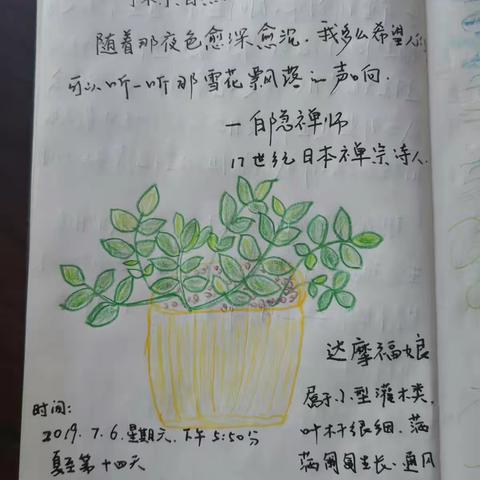 随着那夜色愈深愈沉，我多么希望人们
可以听一听那雪花飘落的声响．
—白隐禅师
17世纪日本禅宗诗人．
达摩福娘
属于小型灌木类，
时间：
2019．7．6．星期六．下午5：50分
叶杆很细．满
夏至第十四天
满匍匐生长．通风